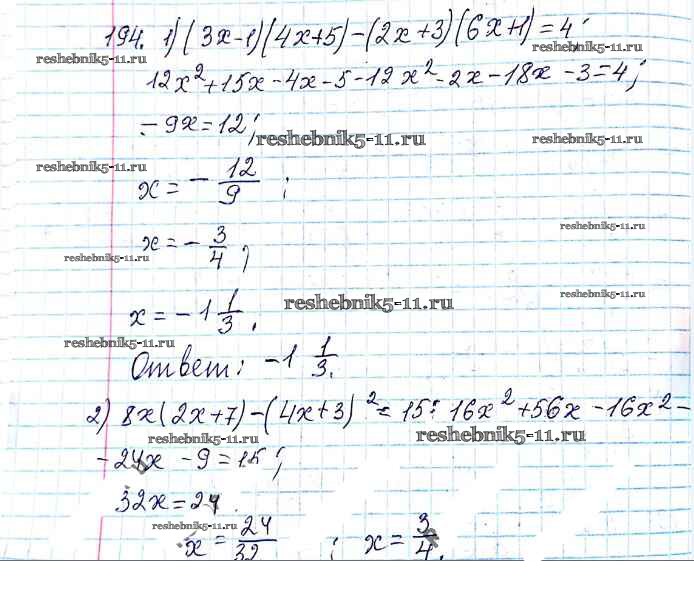 194. 1) (3x-1)(4x+5)-(2x+3)(6x+1)=4;
reshebnik5-11.ru reshebnik5-11.ru
12x²+15x-4x-5-12x²-2x-18x-3=4;
-9x=12;
reshebnik5-11.ru reshebnik5-11.ru
reshebnik5-11.ru
x=-12/9;
reshebnik5-11.ru
x=-3/4;
reshebnik5-11.ru
reshebnik5-11.ru
x=-1 1/3.
reshebnik5-11.ru
reshebnik5-11.ru
Ответ: -1 1/3.
2) 8x(2x+7)-(4x+3)²=15; 16x²+56x-16x²-
reshebnik5-11.ru reshebnik5-11.ru
-24x-9=15;
32x=24
reshebnik5-11.ru
x=24/32; x=3/4.